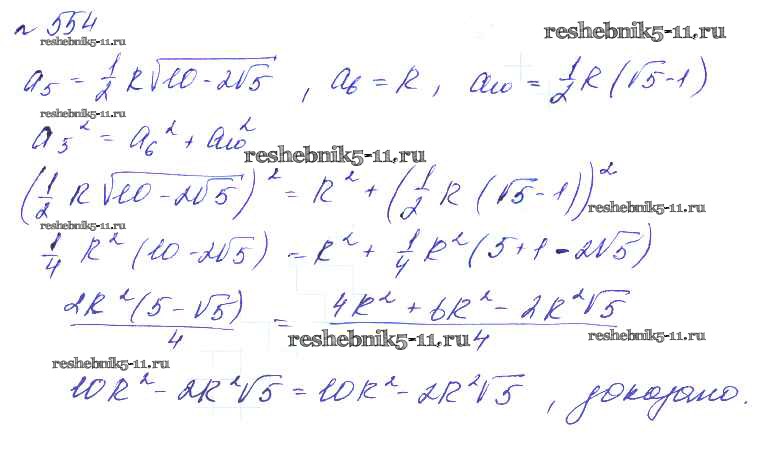 № 554 reshebnik5-11.ru
reshebnik5-11.ru
a₅ = 1/2 R√(10 - 2√5) , a₆ = R, a₁₀ = 1/2 R(√5 - 1)
reshebnik5-11.ru
a₅² = a₆² + a₁₀²
reshebnik5-11.ru
(1/2 R√(10 - 2√5))² = R² + (1/2 R(√5 - 1))²
reshebnik5-11.ru
reshebnik5-11.ru
1/4 R²(10 - 2√5) = R² + 1/4 R²(5 + 1 - 2√5)
2R²(5 - √5)/4 = (4R² + 6R² - 2R²√5)/4
reshebnik5-11.ru reshebnik5-11.ru
reshebnik5-11.ru
10R² - 2R²√5 = 10R² - 2R²√5 , доказано.